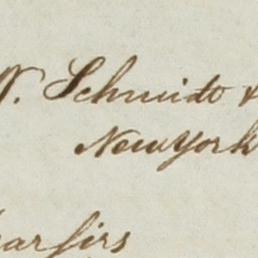 W. Schmidt &
New York
ear Sirs